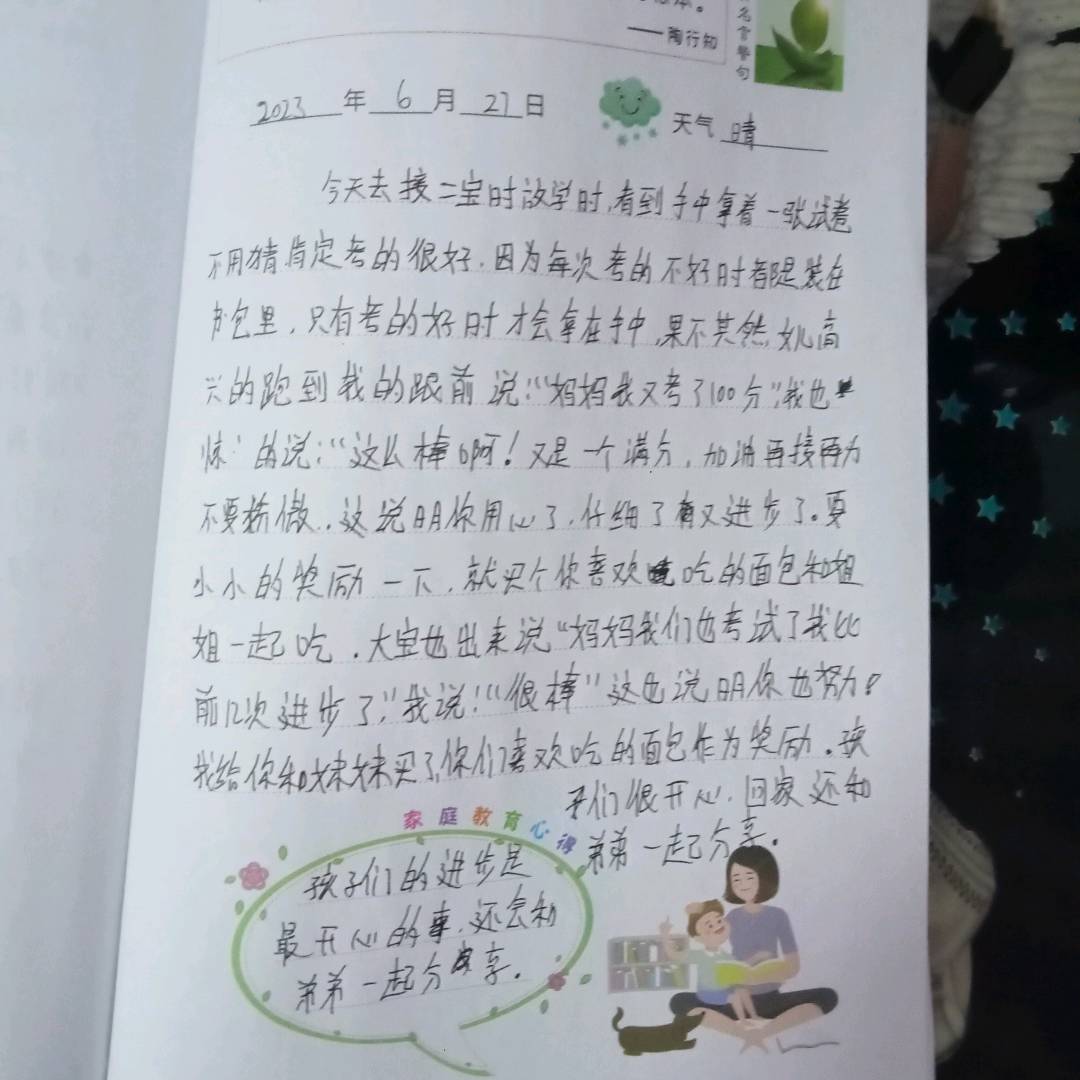 本。
——陶行知
名言警句
2023年6月27日
天气 晴
今天去接二宝时放学时,看到手中拿着一张试卷
不用猜肯定考的很好.因为每次考的不好时都是装在
书包里,只有考的好时才会拿在手中,果不其然,女儿高
兴的跑到我的跟前说:“妈妈我又考了100分”我也
的说:“这么棒啊!又是一个满分,加油再接再力
不要骄傲..这说明你用心了,仔细了有又进步了。要
小小的奖励一下,就买个你喜欢吃的面包和姐
姐一起吃.大宝也出来说“妈妈我们也考试了我比
前几次进步了,”我说:“很棒”这也说明你也努力。
我给你和妹妹买了,你们喜欢吃的面包作为奖励.孩
子们很开心.回家还和
弟弟一起分享.
家庭教育心得
孩子们的进步是
最开心的事.还会和
弟弟一起分享.